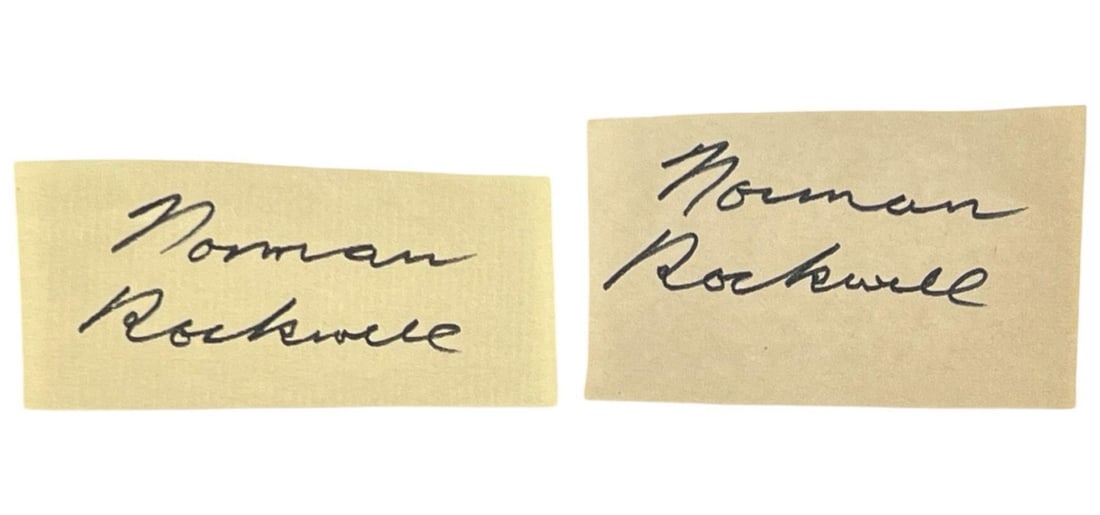 Norman
Rockwell
Norman
Rockwell